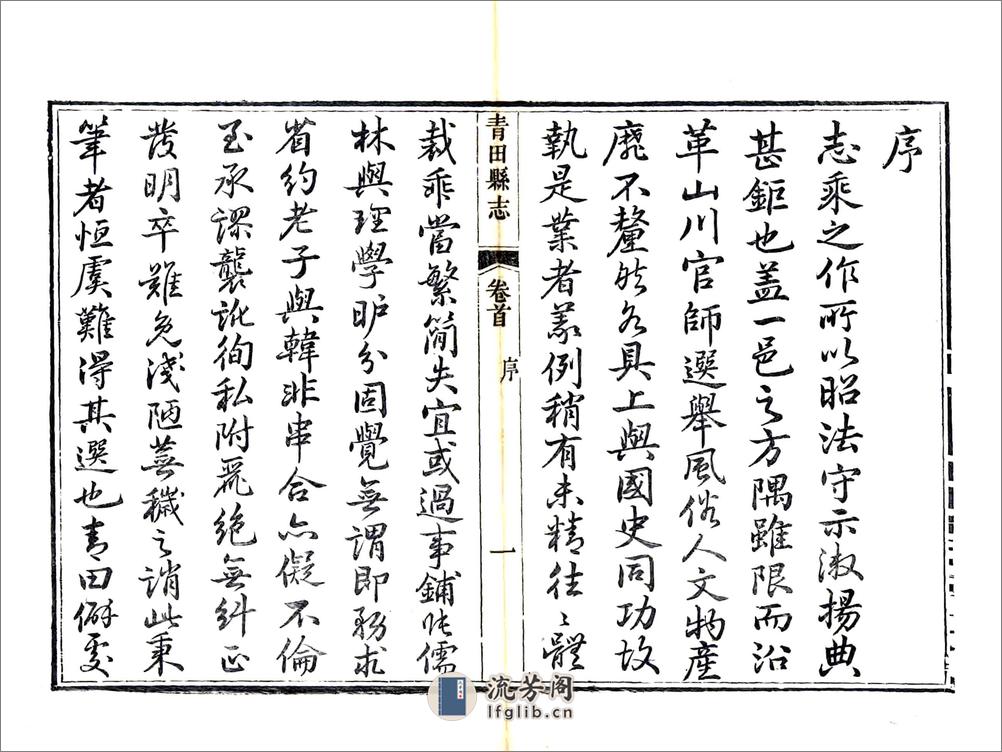 序
志乘之作所以昭法守示淑揚典
甚鉅也盖一邑之方隅雖限而沿
革山川官師選舉風俗人文物産
靡不釐然各具上與國史同功故
執是業者義例稍有未精往〻體
青田縣志
卷首
序
一
裁乖當繁簡失宜或過事鋪張儒
林與理學旷分固覺無謂即務求
省約老子與韓非串合亦儗不倫
至承謬襲訛徇私附麗絶無糾正
發明卒難免淺陋蕪穢之誚此秉
筆者恒虞難得其選也青田僻處
流芳阁
lfglib.cn